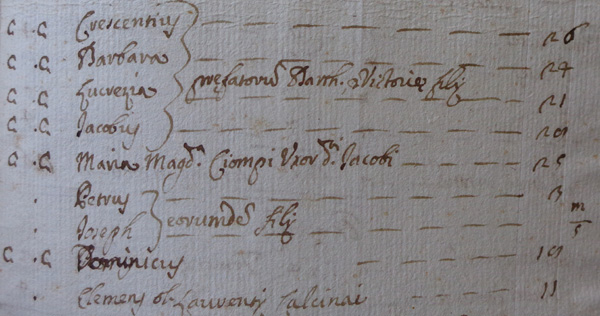 C . C Crescentius — — — — — — — 26
C . C Barbara — — — — — — — 24
C . C Lucrezia præfatorū Barth. & Victoriæ filij — — — 21
C . C Jacobus — — — — — — — 20
C . C Maria Magd.ª Ciompi Uxor d.ⁱ Jacobi — — — — 25
. Petrus — — — — — — — 3
. Joseph eorumdē filij — — — — — m/5
C . C Dominicus — — — — 19
. Clemens ol. Laurentij Calcinai — — — — 11